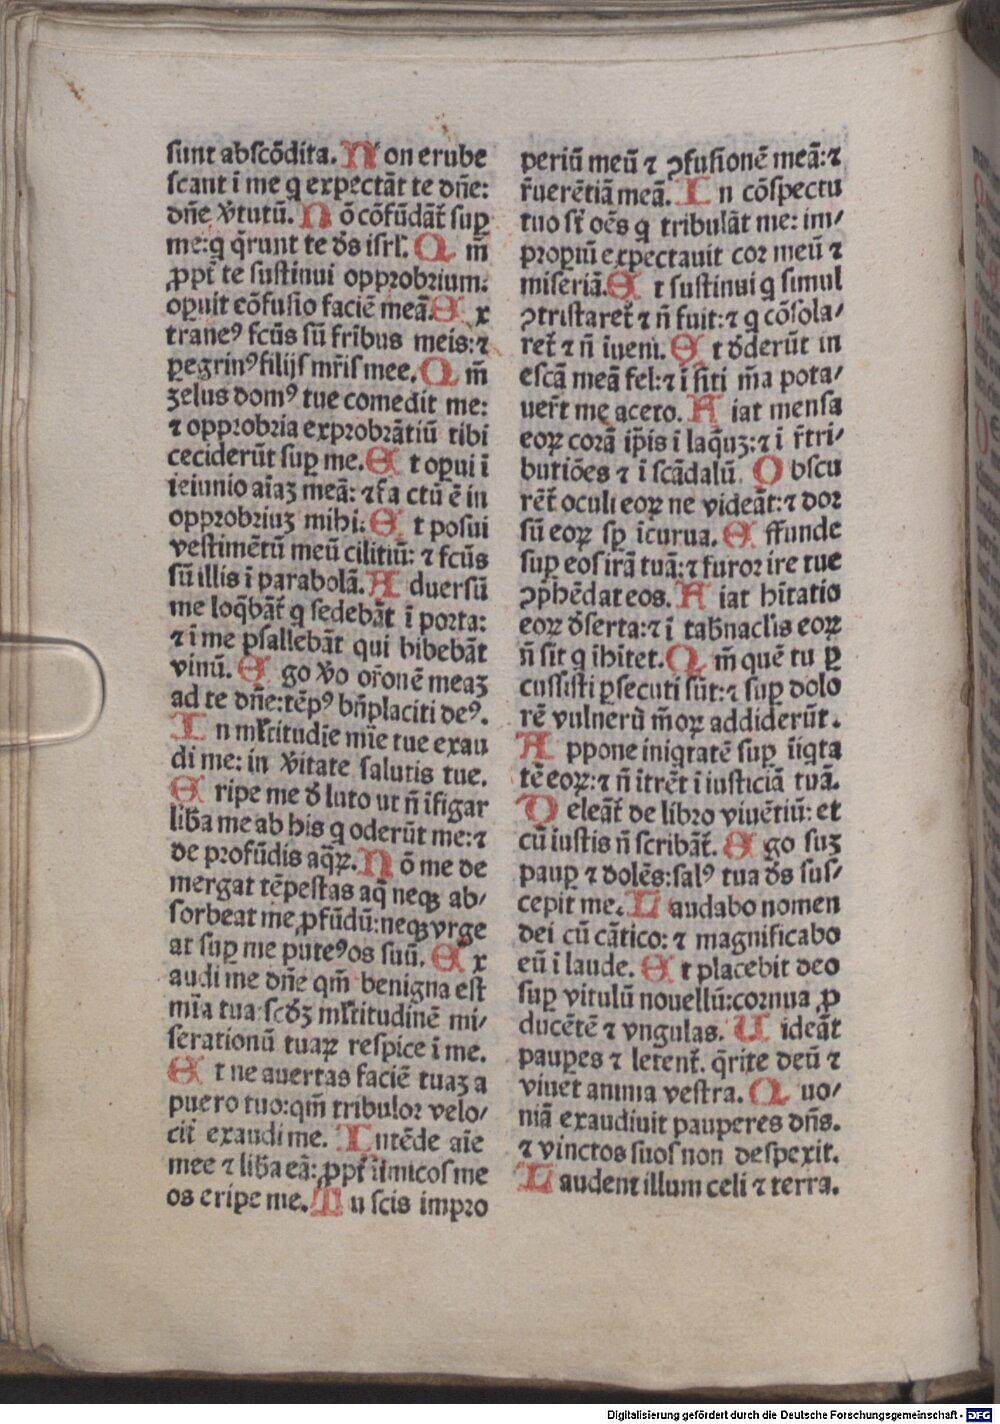 sunt abscōdita. Non erube
scant ī me q expectāt te dn̄e:
dn̄e v̾tutū. Nō cōfūdāt᷑ suꝑ
me: q q̄runt te ds̄ isrl̄. Qm̄
ꝓpt᷑ te sustinui opprobrium:
opuit cōfusio faciē meā. Ex
traneꝰ fcūs sū frībus meis: ⁊
ꝑegrinꝰ filijs mr̄is mee. Qm̄
zelus domꝰ tue comedit me:
⁊ opprobria exprobrātiū tibi
ceciderūt suꝑ me. Et opui ī
ieiunio aīaꝫ meā: ⁊ fa ctū ē in
opprobriuꝫ mihi. Et posui
vestimētū meū ciliciū: ⁊ fcūs
sū illis ī parabolā. Aduersū
me loq̄bāt᷑ q sedebāt ī porta:
⁊ ī me psallebāt qui bibebāt
vinū. Ego v̾o or̄onē meaꝫ
ad te dn̄e: tēpꝰ bn̄placiti deꝰ.
In ml̄titudīe mīe tue exau
di me: in v̾itate salutis tue.
Eripe me d̾ luto ut n̄ īfigar
lib̾a me ab his q oderūt me: ⁊
de profūdis aq̄ꝝ. Nō me de
mergat tēpestas aq̄ neqꝫ ab/
sorbeat me ꝓfūdū: neqꝫ vrge
at suꝑ me puteꝰ os suū. Ex
audi me dn̄e qm̄ benigna est
mīa tua: scd̾ꝫ ml̄titudinē mi/
serationū tuaꝝ respice ī me.
Et ne auertas faciē tuaꝫ a
puero tuo: qm̄ tribulor velo/
cit᷑ exaudi me. Intēde aīe
mee ⁊ lib̾a eā: ꝓpt᷑ īimicos me
os eripe me. Tu scis impro
periū meū ⁊ ꝯfusionē meā: ⁊
r̄uerētiā meā. In cōspectu
tuo st̄ oēs q tribulāt me: im/
propiū expectauit cor meū ⁊
miseriā. Et sustinui q simul
ꝯtristaret᷑ ⁊ n̄ fuit: ⁊ q cōsola/
ret᷑ ⁊ n̄ īueni. Et d̾derūt in
escā meā fel: ⁊ ī siti m̄a pota/
uer̄t me aceto. Fiat mensa
eoꝝ corā ip̄is ī laq̄uꝫ: ⁊ ī r̄tri/
butiōes ⁊ ī scādalū. Obscu
rēt᷑ oculi eoꝝ ne videāt: ⁊ dor
sū eoꝝ sꝑ īcurua. Effunde
suꝑ eos irā tuā: ⁊ furor ire tue
ꝯp̄hēdat eos. Fiat hītatio
eoꝝ d̾serta: ⁊ ī tab̾naclīs eoꝝ
n̄ sit q īhītet. Qm̄ quē tu ꝑ
cussisti ꝑsecuti sūt: ⁊ suꝑ dolo
rē vulnerū m̄oꝝ addiderūt.
Appone iniqtatē suꝑ īiqta
tē eoꝝ: ⁊ n̄ ītrēt ī iusticiā tuā.
Deleāt᷑ de libro viuētiū: et
cū iustis n̄ scribāt᷑. Ego suꝫ
pauꝑ ⁊ dolēs: salꝰ tua ds̄ sus/
cepit me. Laudabo nomen
dei cū cātico: ⁊ magnificabo
eū ī laude. Et placebit deo
suꝑ vitulū nouellū: cornua ꝓ
ducētē ⁊ vngulas. Uideāt
pauꝑes ⁊ letent᷑. q̄rite deū ⁊
viuet anima vestra. Quo/
niā exaudiuit pauperes dn̄s.
⁊ vinctos suos non despexit.
Laudent illum celi ⁊ terra.
Digitalisierung gefördert durch die Deutsche Forschungsgemeinschaft - DFG